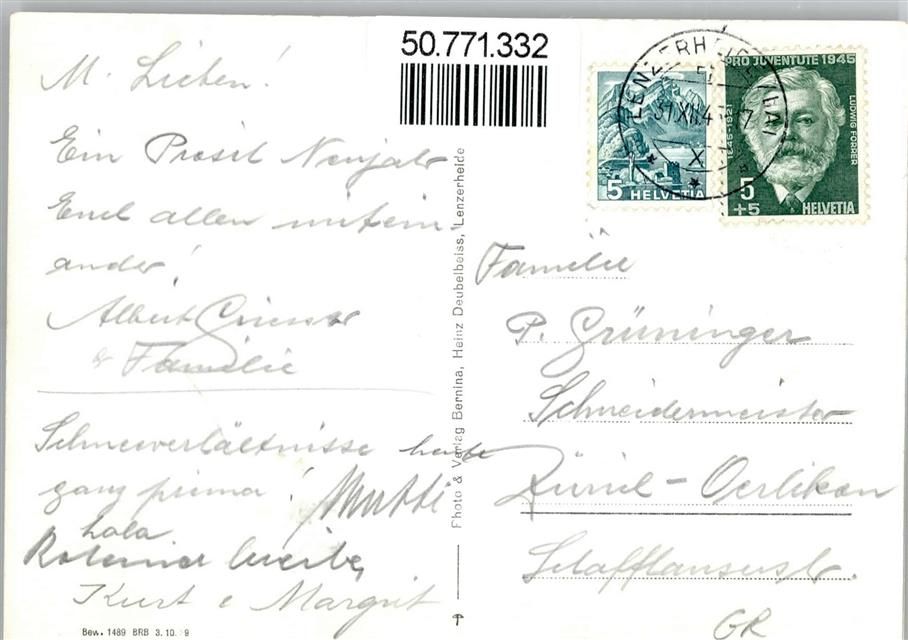 50.771.332
M. Lieben!
Ein Prosit Neujahr
Euch allen mitein
ander!
Albert
& Familie
Schneeverhältnisse heute
ganz prima! Mutti
Lola
Kurt & Margrit
Bew. 1489 BRB 3.10. 9
Photo & Verlag Bernina, Heinz Deubelbeiss, Lenzerheide
5 HELVETIA
PRO JUVENTUTE 1945
1845-1921
LUDWIG FORRER
5
+5 HELVETIA
31.XII.4
X
Familie
P. Grüninger
Schneidermeister
Zürich - Oerlikon
Schaffhauserstr.
GR